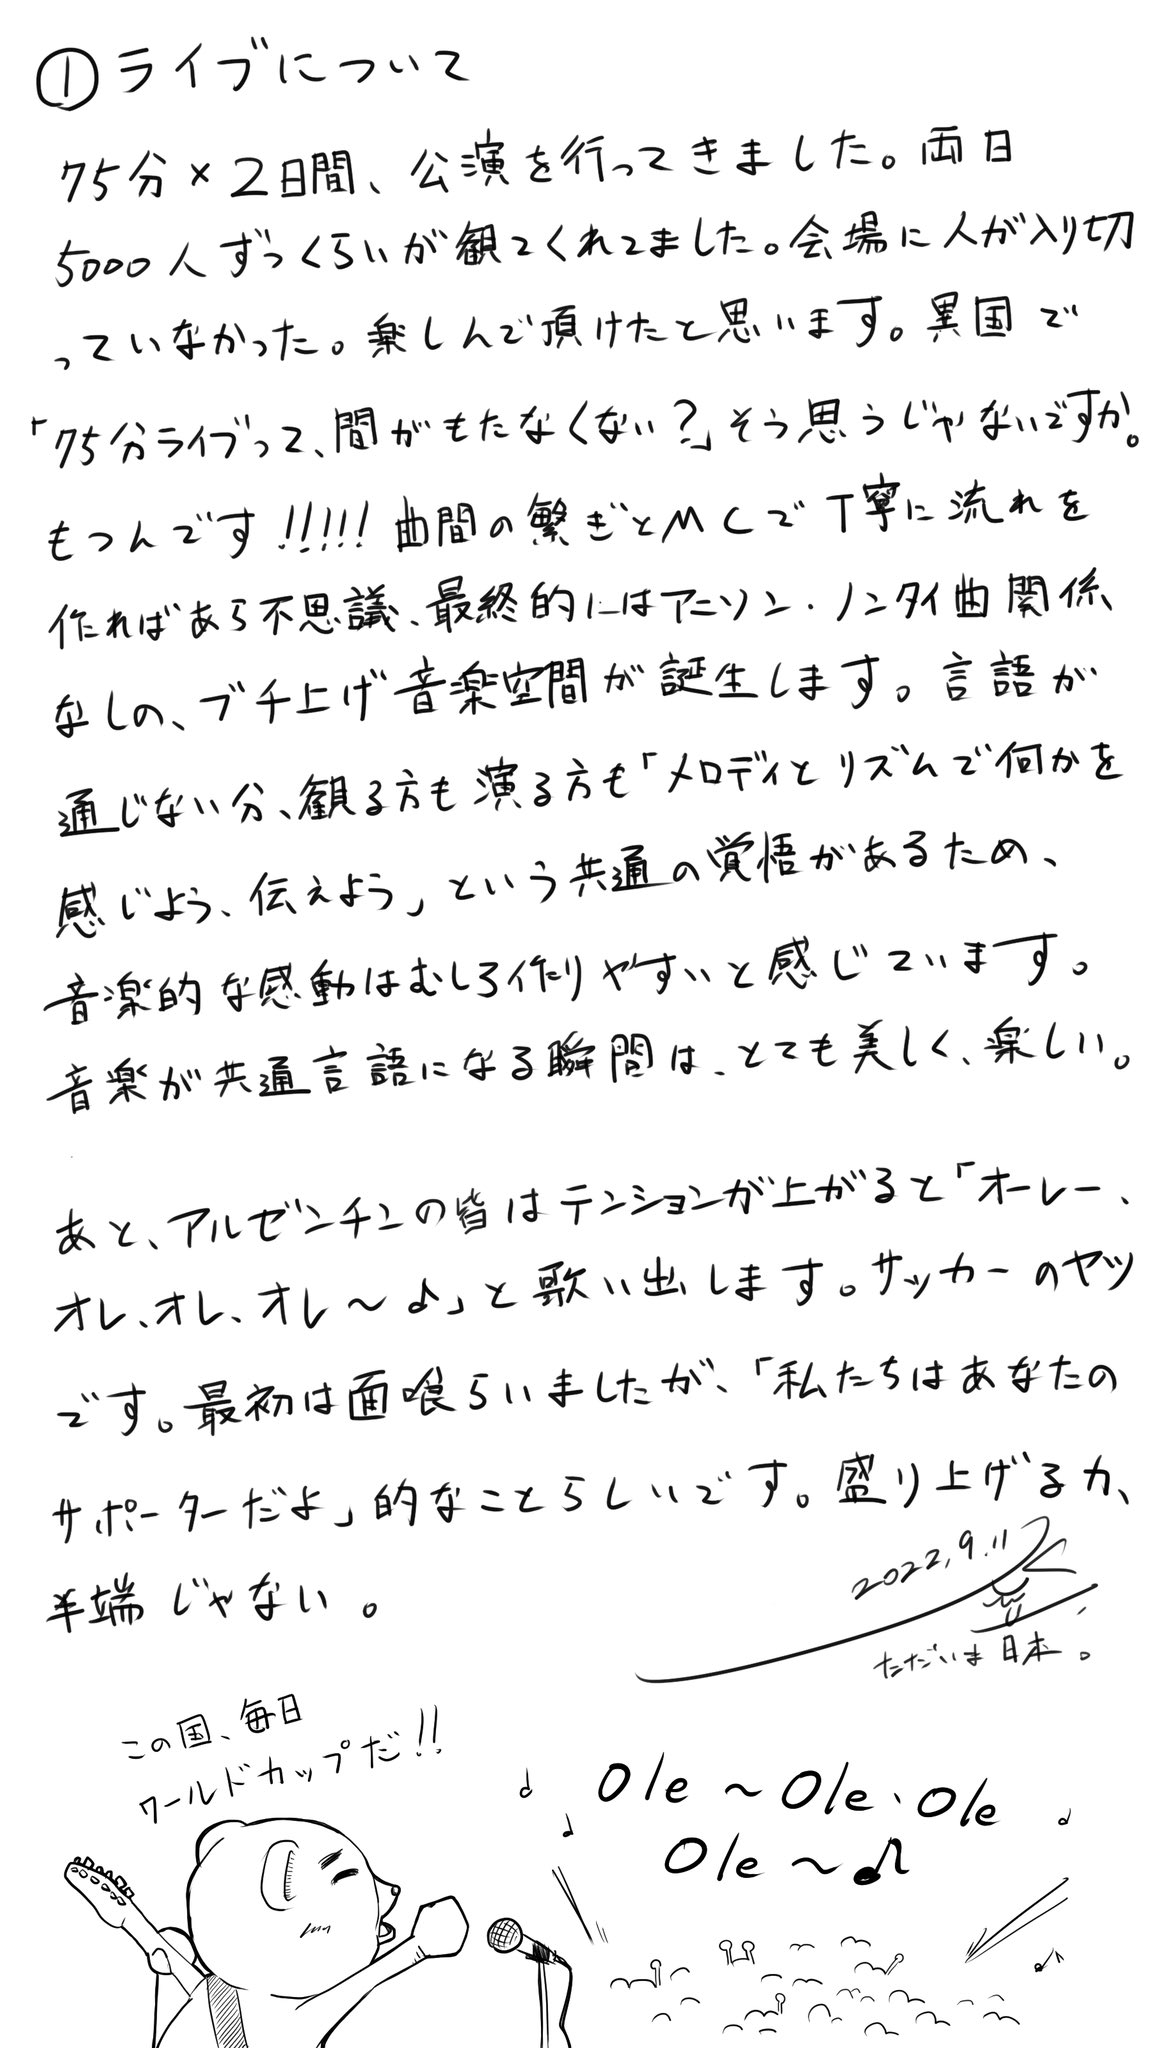 ① ライブについて
75分×2日間、公演を行ってきました。両日
5000人ずつくらいが観てくれてました。会場に人が入り切
っていなかった。楽しんで頂けたと思います。異国で
「75分ライブって、間がもたなくない？」そう思うじゃないですか。
もつんです!!!!! 曲間の繋ぎとMCで丁寧に流れを
作ればあら不思議、最終的にはアニソン・ノンタイ曲関係
なしの、ブチ上げ音楽空間が誕生します。言語が
通じない分、観る方も演る方も「メロディとリズムで何かを
感じよう、伝えよう」という共通の覚悟があるため、
音楽的な感動はむしろ作りやすいと感じています。
音楽が共通言語になる瞬間は、とても美しく、楽しい。
あと、アルゼンチンの皆はテンションが上がると「オーレー、
オレ、オレ、オレ〜♪」と歌い出します。サッカーのヤツ
です。最初は面喰らいましたが、「私たちはあなたの
サポーターだよ」的なことらしいです。盛り上げる力、
半端じゃない。
2022.9.11
ただいま日本。
この国、毎日
ワールドカップだ!!
Ole〜Ole、Ole
Ole〜♪